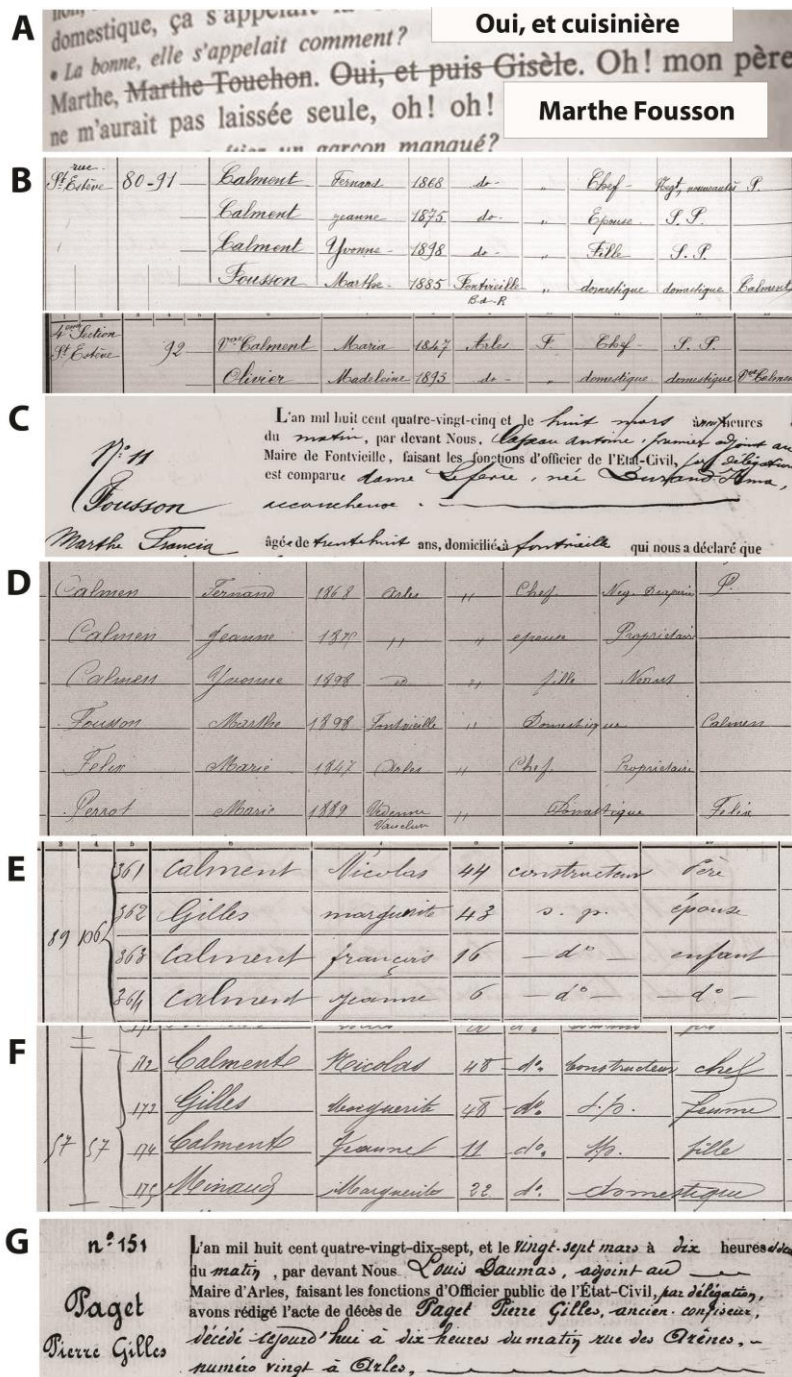 A
domestique, ça s'appelait la
Oui, et cuisinière
• La bonne, elle s'appelait comment?
Marthe, Marthe Touchon. Oui, et puis Gisèle. Oh! mon père
ne m'aurait pas laissée seule, oh! oh!
Marthe Fousson
un garçon manqué?
B
rue
St Estève 80-91 Calment Fernand 1868 do- " Chef - Negt, nouveautés P.
Calment Jeanne 1875 do- " Epouse S.P.
Calment Yvonne - 1898 do- " Fille S.P.
Fousson Marthe- 1885 Fontvieille " domestique domestique Calment
B-d-R
4eme Section
St Estève 92 Vve Calment Maria 1847 Arles F. Chef - S.P.
Olivier Madeleine 1895 do- domestique domestique Vve Calment
C
L'an mil huit cent quatre-vingt-cinq et le huit mars à heures
du matin, par devant Nous, Antoine, premier adjoint au
Maire de Fontvieille, faisant les fonctions d'officier de l'Etat-Civil, par délégation
est comparue dame née Durand
accoucheuse
No 11
Fousson
Marthe Francia
âgée de trente huit ans, domiciliée à fontvieille qui nous a déclaré que
D
Calmen Fernand 1868 Arles " Chef Neg. P.
Calmen Jeanne " " epouse Proprietaire
Calmen Yvonne 1898 D " fille
Fousson Marthe 1898 Fontvieille " Domestique Calmen
Felix Marie 1847 Arles " Chef Proprietaire
Perrot Marie 1889 Vedenne " Domestique Felix
Vaucluse
E
3 4 5 6
361 Calment Nicolas 44 constructeur Père
362 Gilles marguerite 43 s.p. épouse
89 106
363 calment françois 16 - do - enfant
364 calment jeanne 6 - do - - do -
F
172 Calment Nicolas 48 do. Constructeur chef
173 Gilles Marguerite 48 do. s.p. femme
57 57
174 Calment Jeanne 11 do. sp. fille
175 Minaud Marguerite 22 do. domestique
G
no 151
L'an mil huit cent quatre-vingt-dix-sept, et le vingt-sept mars à dix heures
du matin, par devant Nous Louis Daumas, adjoint au
Maire d'Arles, faisant les fonctions d'Officier public de l'État-Civil, par délégation,
Paget
avons rédigé l'acte de décès de Paget Pierre Gilles, ancien confiseur,
Pierre Gilles
décédé cejourd'hui à dix heures du matin rue des Arènes,
numéro vingt à Arles,